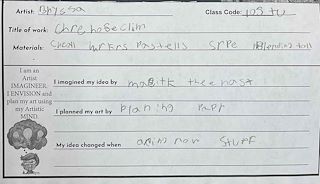 Artist: Bryssa Class Code: 105 tu
Title of work: Chrenobeclim
Materials: Chcoll mrkrs Pastells srpe Blending toll
I am an
Artist
IMAGINEER.
I ENVISION and
plan my art using
my Artistic
MIND.
I imagined my idea by
I planned my art by planing papr
My idea changed when adding nov stuff